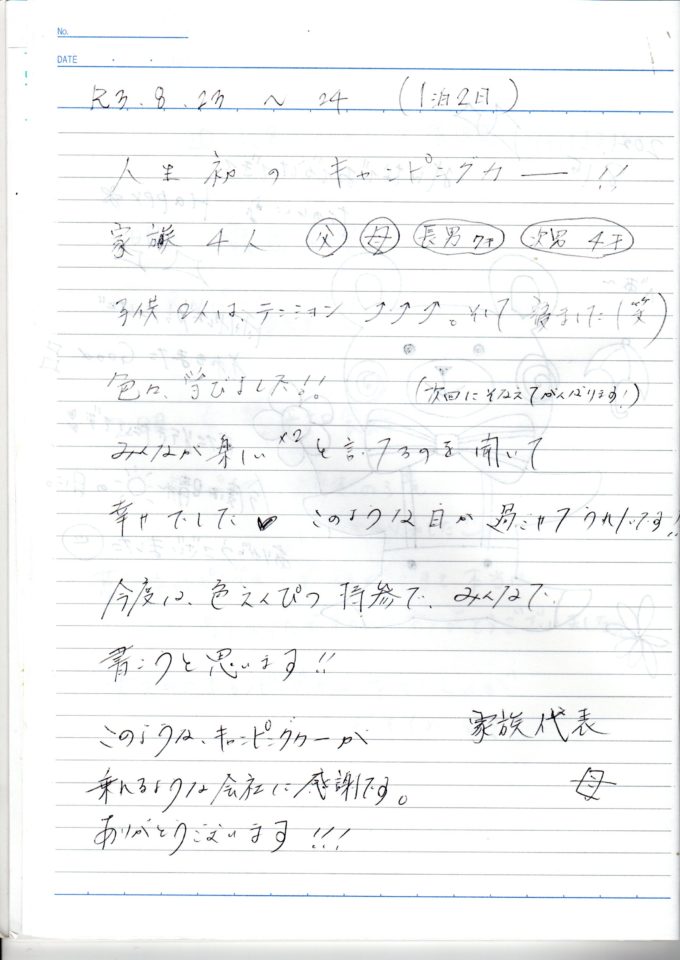 No.
DATE
R3.8.23 ～ 24 (1泊2日)
人生初のキャンピングカー!!
家族4人 父 母 長男7才 次男4才
子供2人は、テンション↑↑↑。そして 揉めました(笑)
色々、学びました!! (次回にそなえてがんばります!)
みんなが楽しい×2と言ってるのを聞いて
幸せでした♥ このような日が過ごせてうれしいです!!
今度は、色えんぴつ持参で、みんなで
書こうと思います!!
このような、キャンピングカーが
乗れるような会社に感謝です。
ありがとうございます!!!
家族代表
母